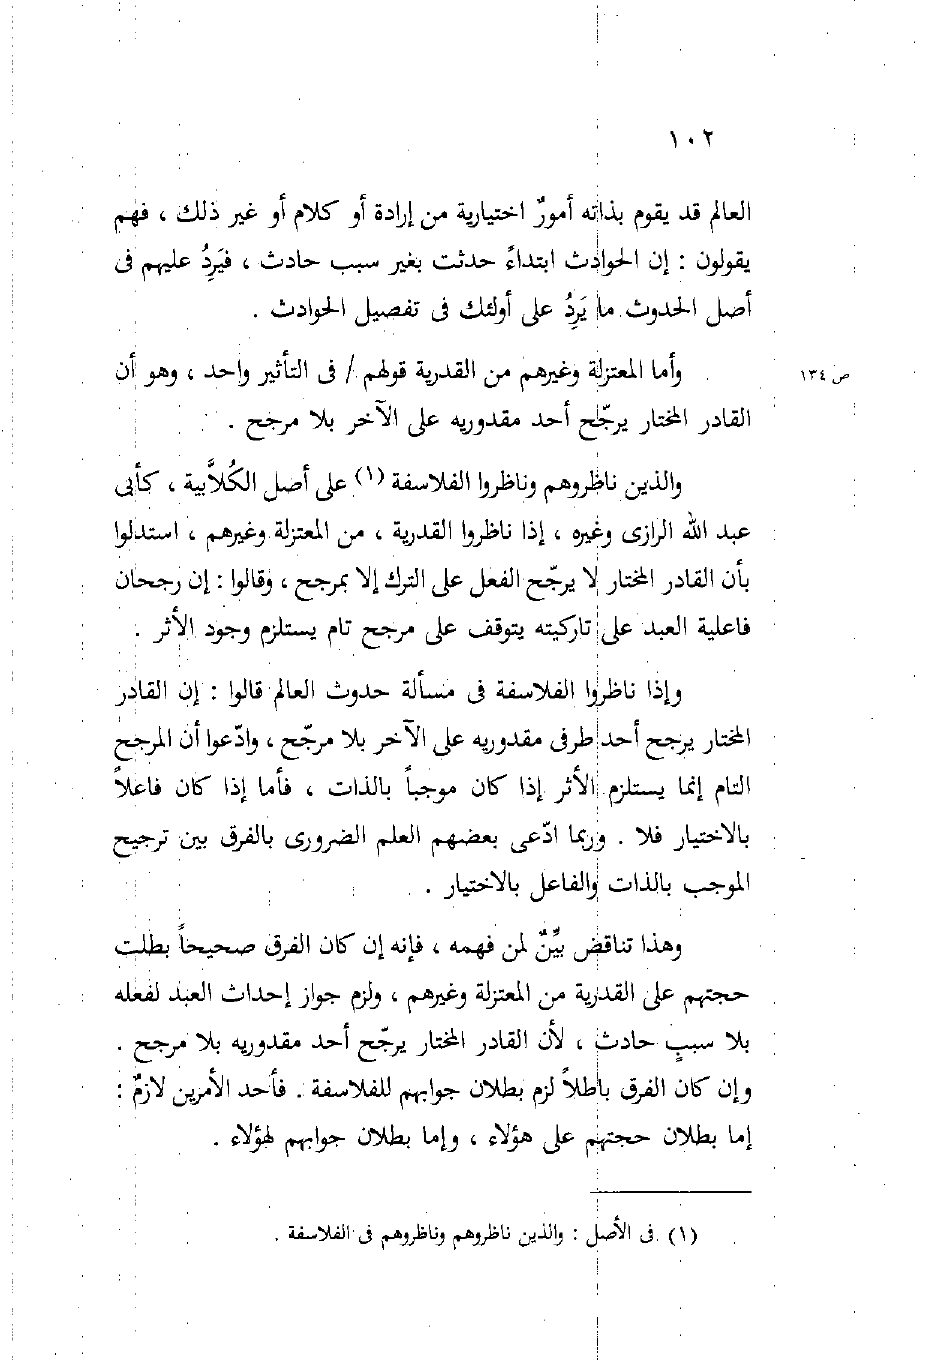 ١٠٢
العالم قد يقوم بذاته أمورٌ اختيارية من إرادة أو كلام أو غير ذلك ، فهم
يقولون : إن الحوادث ابتداءً حدثت بغير سبب حادث ، فيَرِدُ عليهم فى
أصل الحدوث ما يَرِدُ على أولئك فى تفصيل الحوادث .
وأما المعتزلة وغيرهم من القدرية قولهم / فى التأثير واحد ، وهو أن
ص ١٣٤
القادر المختار يرجّح أحد مقدوريه على الآخر بلا مرجح .
والذين ناظروهم وناظروا الفلاسفة (١) على أصل الكُلاَّبية ، كأبى
عبد الله الرازى وغيره ، إذا ناظروا القدرية ، من المعتزلة وغيرهم ، استدلوا
بأن القادر المختار لا يرجّح الفعل على الترك إلا بمرجح ، وقالوا : إن رجحان
فاعلية العبد على تاركيته يتوقف على مرجح تام يستلزم وجود الأثر .
وإذا ناظروا الفلاسفة فى مسألة حدوث العالم قالوا : إن القادر
المختار يرجح أحد طرفى مقدوريه على الآخر بلا مرجّح ، وادّعوا أن المرجح
التام إنما يستلزم الأثر إذا كان موجباً بالذات ، فأما إذا كان فاعلاً
بالاختيار فلا . وربما ادّعى بعضهم العلم الضرورى بالفرق بين ترجيح
الموجب بالذات والفاعل بالاختيار .
وهذا تناقض بيِّنٌ لمن فهمه ، فإنه إن كان الفرق صحيحاً بطلت
حجتهم على القدرية من المعتزلة وغيرهم ، ولزم جواز إحداث العبد لفعله
بلا سببٍ حادث ، لأن القادر المختار يرجّح أحد مقدوريه بلا مرجح .
وإن كان الفرق باطلاً لزم بطلان جوابهم للفلاسفة . فأحد الأمرين لازمٌ :
إما بطلان حجتهم على هؤلاء ، وإما بطلان جوابهم لهؤلاء .
(١) فى الأصل : والذين ناظروهم وناظروهم فى الفلاسفة .